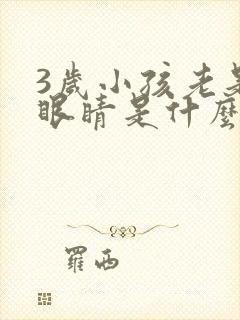 3歲小孩老是
眼睛是什麼
羅西